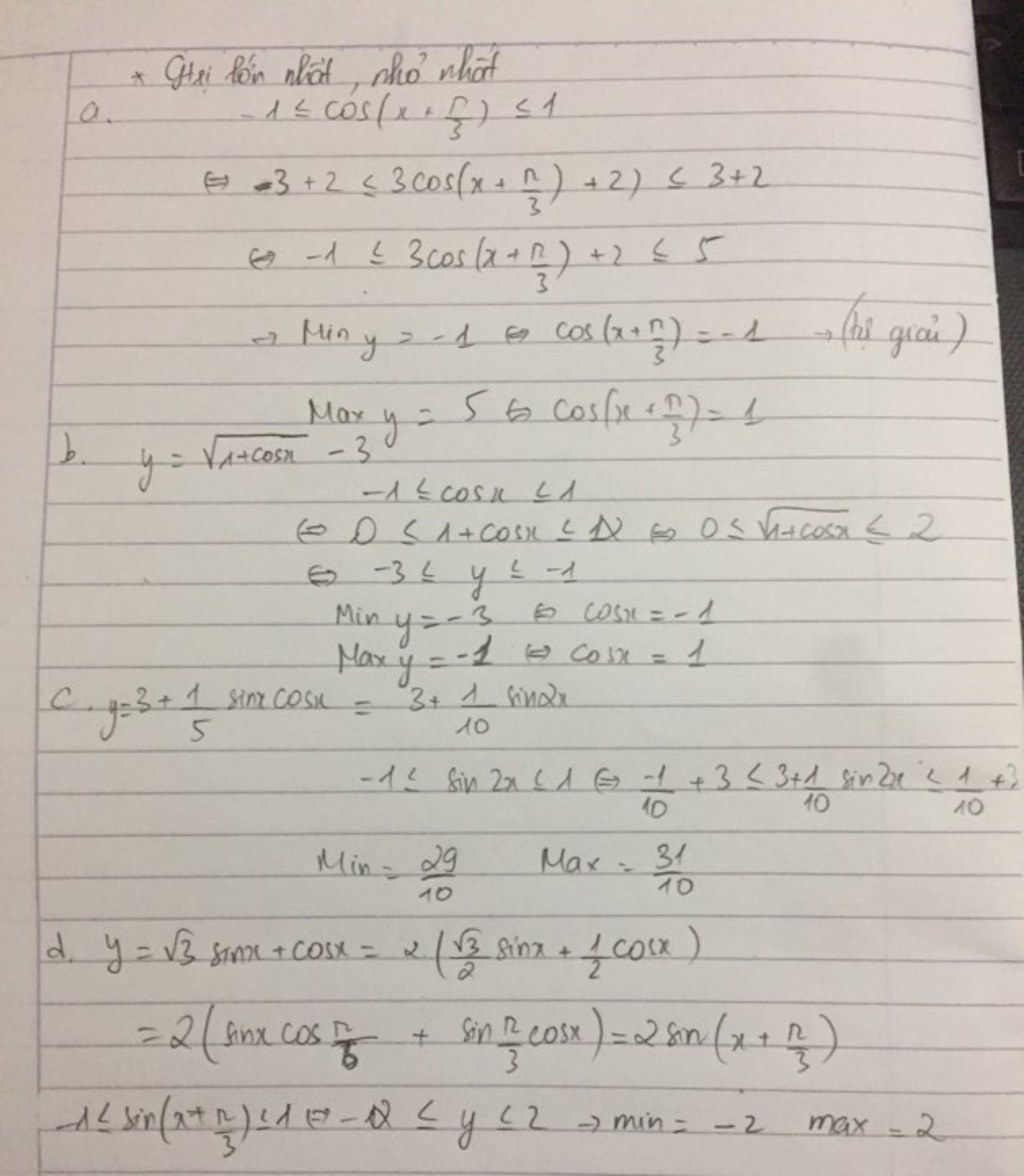 * Gtrị lớn nhất, nhỏ nhất
a. -1 ≤ cos(x + π/3) ≤ 1
⇔ -3 + 2 ≤ 3cos(x + π/3) + 2) ≤ 3+2
⇔ -1 ≤ 3cos(x + π/3) + 2 ≤ 5
→ Min y = -1 ⇔ cos(x + π/3) = -1 → (tự giải)
Max y = 5 ⇔ cos(x + π/3) = 1
b. y = √(1+cosx) - 3
-1 ≤ cosx ≤ 1
⇔ 0 ≤ 1+cosx ≤ 2 ⇔ 0 ≤ √(1+cosx) ≤ 2
⇔ -3 ≤ y ≤ -1
Min y = -3 ⇔ cosx = -1
Max y = -1 ⇔ cosx = 1
c. y = 3 + 1/5 sinx cosx = 3 + 1/10 sin2x
-1 ≤ sin 2x ≤ 1 ⇔ -1/10 + 3 ≤ 3 + 1/10 sin 2x ≤ 1/10 + 3
Min = 29/10 Max = 31/10
d. y = √3 sinx + cosx = 2(√3/2 sinx + 1/2 cosx)
= 2(sinx cos π/6 + sin π/3 cosx) = 2 sin(x + π/3)
-1 ≤ sin(x + π/3) ≤ 1 ⇔ -2 ≤ y ≤ 2 → min = -2 max = 2